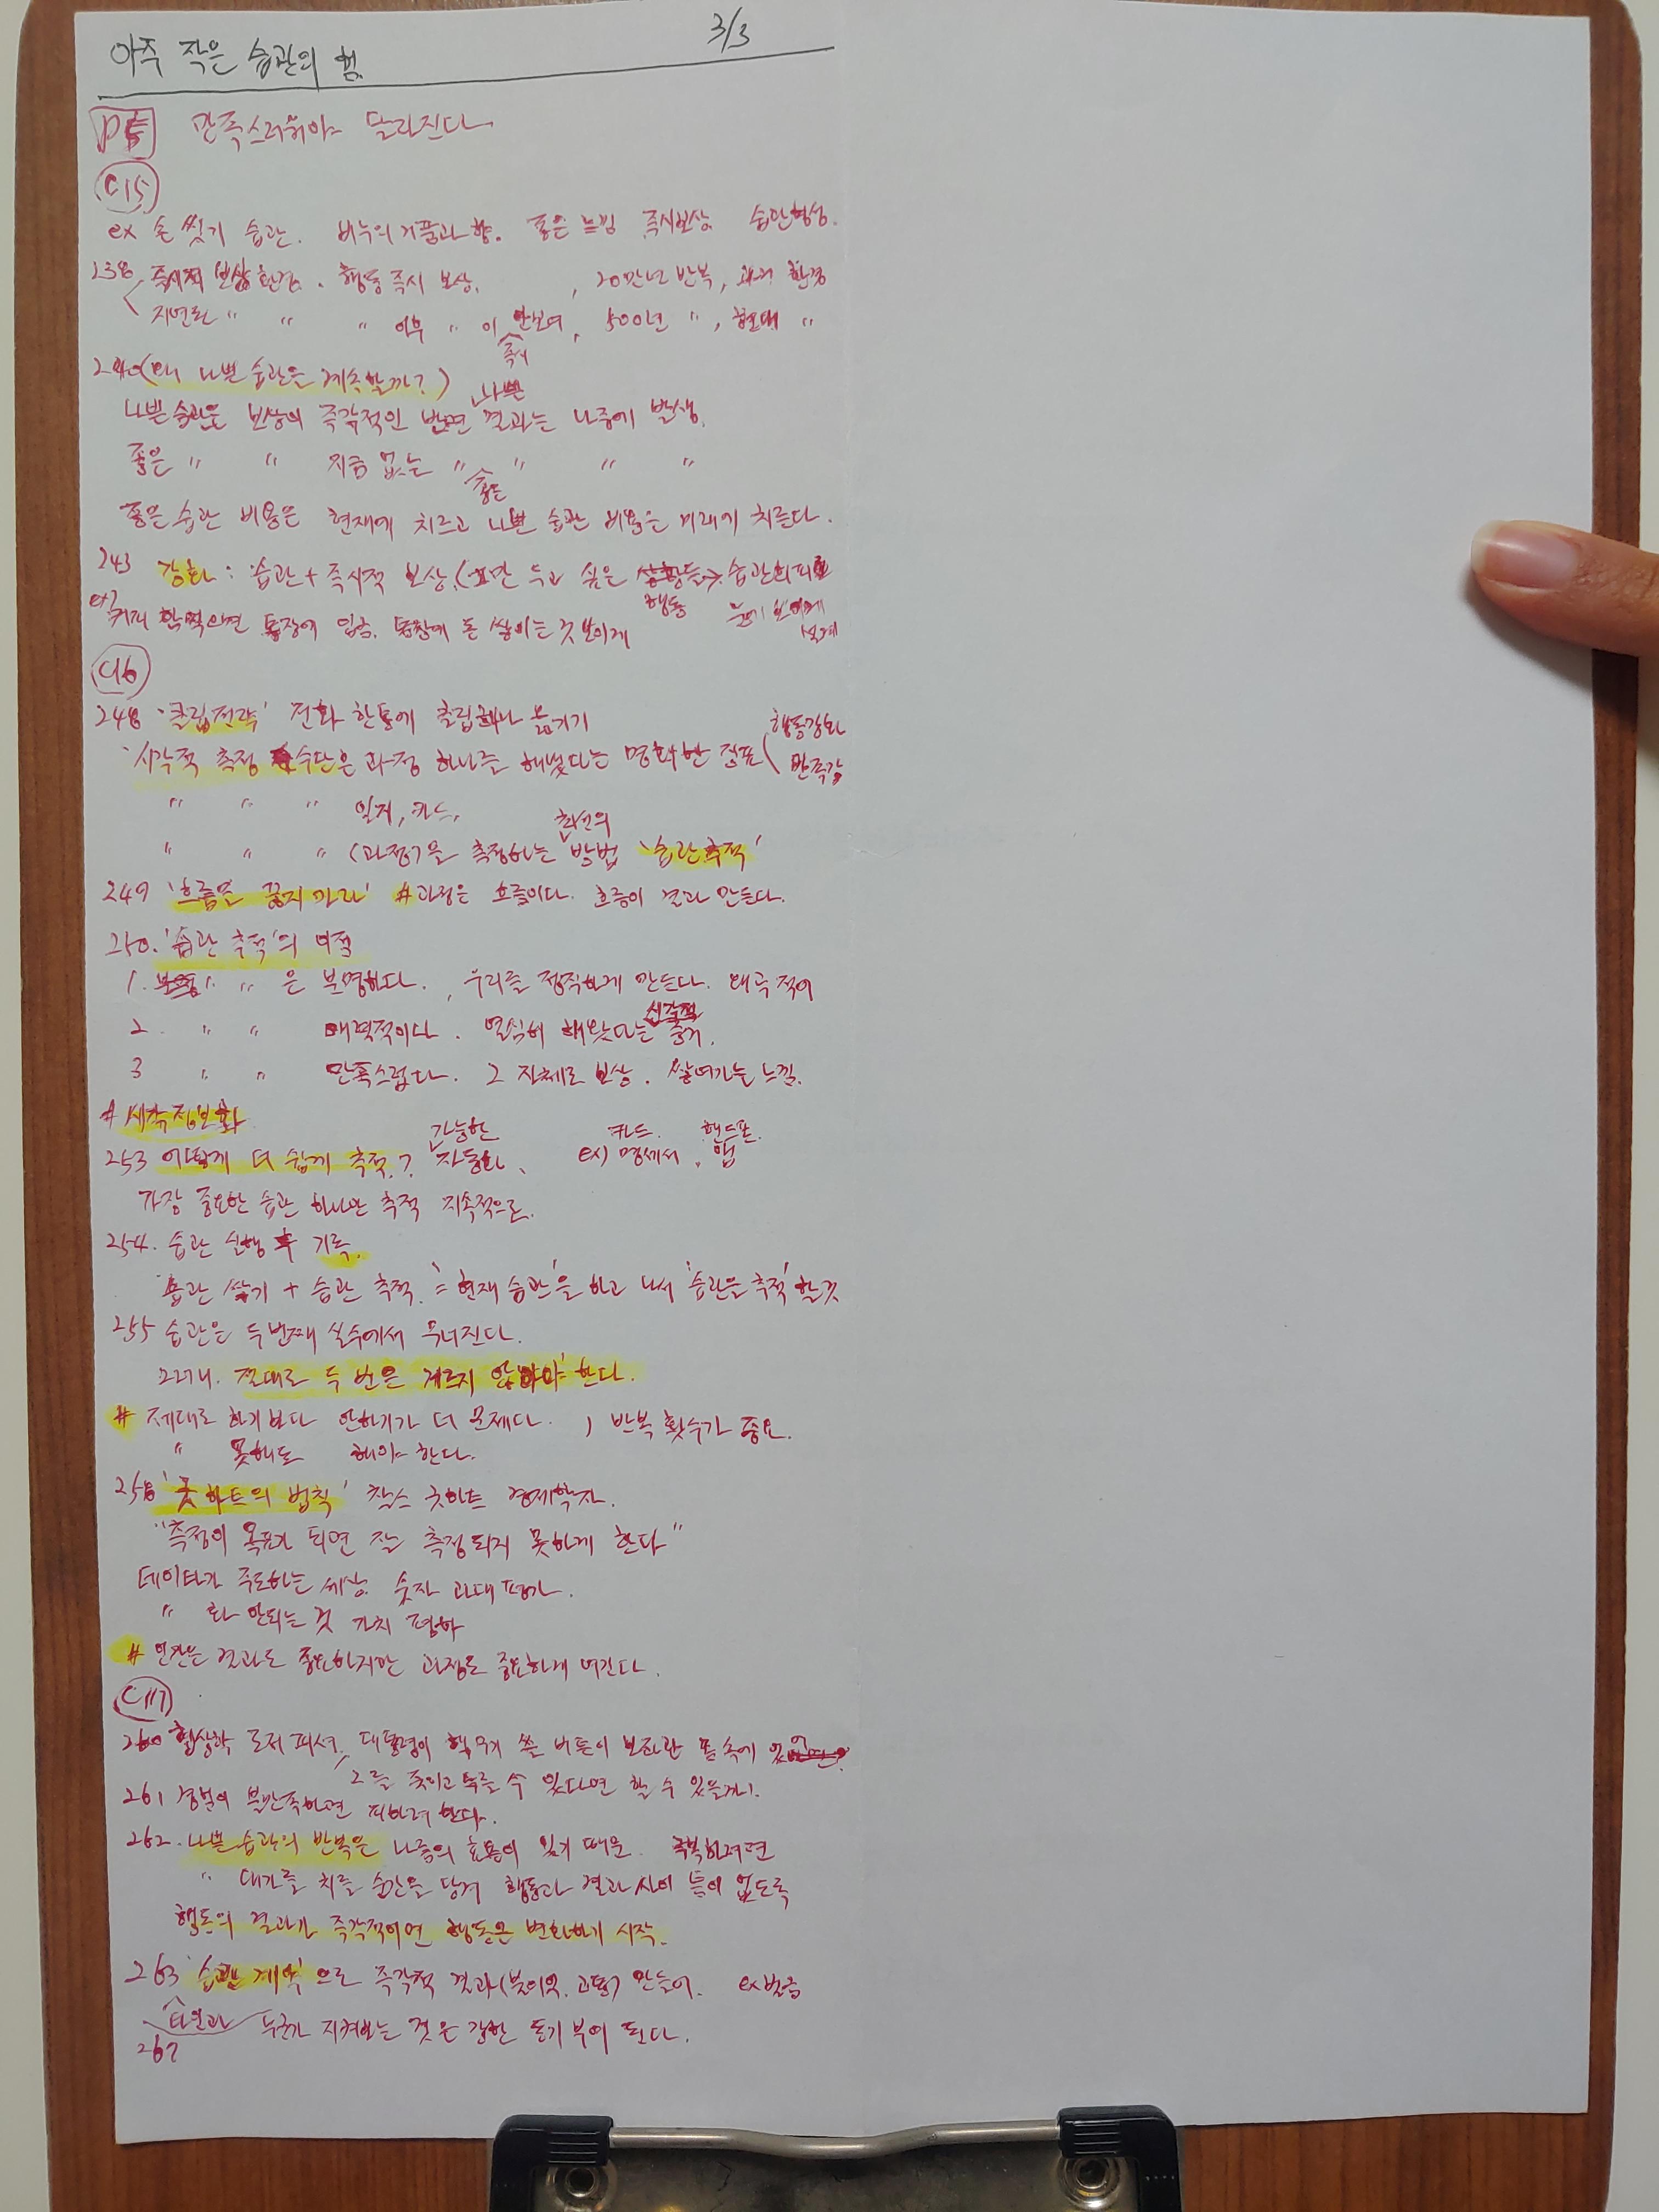 아주 작은 습관의 힘 3/3
P5 만족스러워야 달라진다
C15
ex 손 씻기 습관. 비누의 거품과 향. 좋은 느낌 즉시보상. 습관형성.
238 즉시적 보상환경. 행동 즉시 보상. , 20만년 반복, 과거 환경
지연된 〃 〃 〃 이후 〃 이 안보여, 500년 〃, 현대 〃
즉시
240 (왜 나쁜 습관을 계속할까?)
나쁜
나쁜 습관은 보상이 즉각적인 반면 결과는 나중에 발생.
좋은 〃 〃 지금 없는 〃 〃 〃 〃
좋은
좋은 습관 비용은 현재에 치르고 나쁜 습관 비용은 미래에 치른다.
243 강화 : 습관 + 즉시적 보상. 두고 싶은 습관회피
행동 눈에 보이게
ex) 커피 참으면 통장에 입금. 통장에 돈 쌓이는 것 보이게
C16
248 '클립전략' 전화 한통에 클립하나 옮기기
행동강화
'시각적 측정 수단은 과정 하나를 해냈다는 명확한 징표
만족감
〃 〃 〃 일지, 카드,
최선의
〃 〃 〃 (과정)을 측정하는 방법 '습관추적'
249 '흐름을 끊지마라' #과정은 흐름이다. 흐름이 결과 만든다.
250. '습관 추적'의 이점
1. 〃 은 분명하다. , 우리를 정직하게 만든다. 왜곡 적어
시각적
2. 〃 〃 매력적이다. 열심히 해왔다는 증거.
3 〃 〃 만족스럽다. 그 자체로 보상. 쌓여가는 느낌.
# 시각정보화
가능한 카드 핸드폰
253 어떻게 더 쉽게 추적? 자동화. ex) 명세서, 앱
가장 중요한 습관 하나만 추적 지속적으로.
254. 습관 실행 후 기록.
습관 쌓기 + 습관 추적. = '현재 습관'을 하고 나서 '습관을 추적' 할것
255 습관은 두번째 실수에서 무너진다.
그러니. 절대로 두 번은 거르지 않아야 한다.
# 제대로 하기보다 안하기가 더 문제다. ) 반복 횟수가 중요.
〃 못해도 해야 한다.
258 '굿하트의 법칙' 찰스 굿하트 경제학자.
"측정이 목표가 되면 잘 측정되지 못하게 한다"
데이타가 주도하는 세상. 숫자 과대 평가.
〃 화 안되는 것 가치 폄하
# 인간은 결과도 중요하지만 과정도 중요하게 여긴다.
C17
260 협상학 로저 피셔. 대통령이 핵무기 쏠 버튼이 보좌관 몸 속에
그를 죽이고 누를 수 있다면 할 수 있을까?
261 경험이 불만족하면 피하려 한다.
262. 나쁜 습관의 반복은 나름의 효용이 있기 때문. 극복하려면
〃 대가를 치를 순간을 당겨 행동과 결과 사이 틈이 없도록
행동의 결과가 즉각적이면 행동은 변화하기 시작.
263 '습관 계약'으로 즉각적 결과(불이익. 고통) 만들어. ex 벌금
타인과
267 누군가 지켜보는 것은 강한 동기 부여 된다.